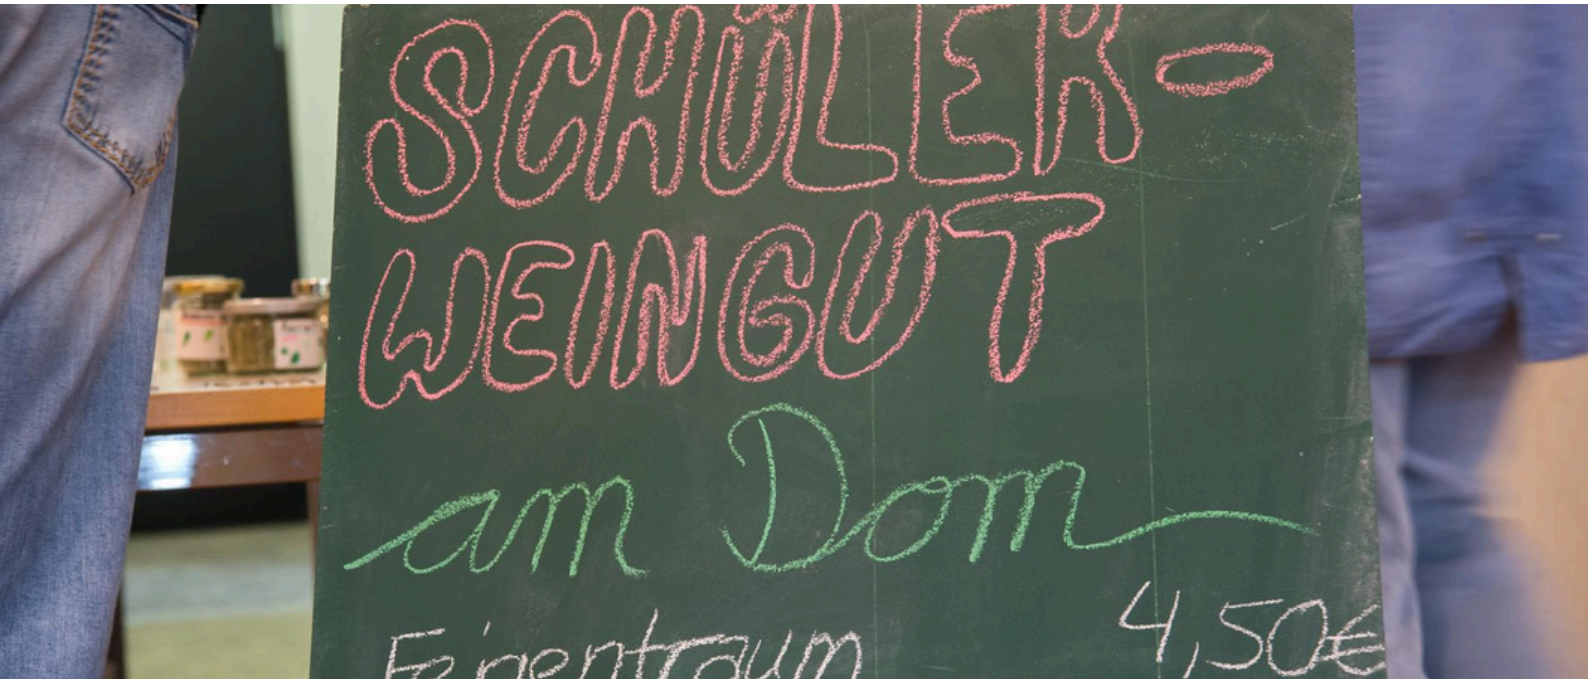 SCHÜLER-
WEINGUT
am Dom
Feigentraum 4,50€